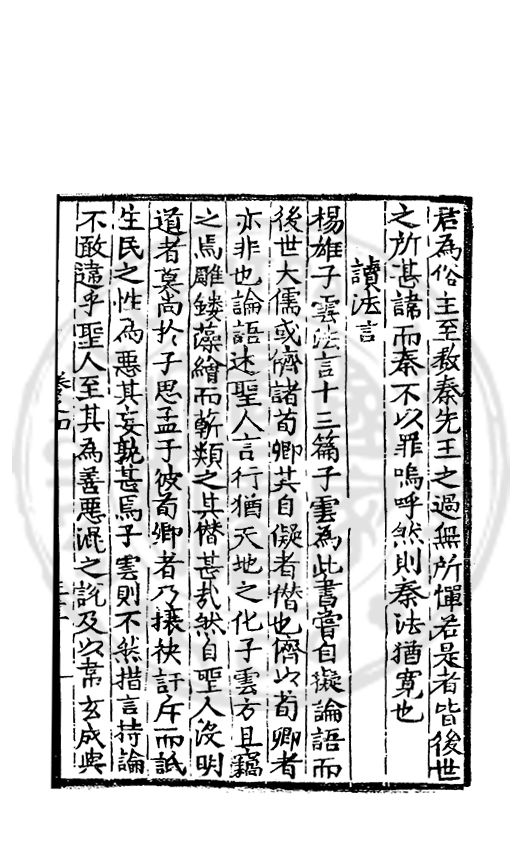 君為俗主至教秦先王之過無所憚若是者皆後世
之所甚諱而秦不以罪嗚呼然則秦法猶寛也
讀法言
楊雄子雲法言十三篇子雲為此書嘗自擬論語而
後世大儒或儕諸荀卿其自儗者僭也儕以荀卿者
亦非也論語述聖人言行猶天地之化子雲方且竊
之焉雕鏤藻繪而蘄類之其僭甚哉然自聖人沒明
道者莫尚於子思孟子彼荀卿者乃攘袂訐斥而詆
生民之性為惡其妄孰甚焉子雲則不然措言持論
不敢違乎聖人至其為善惡混之說及以韋玄成與